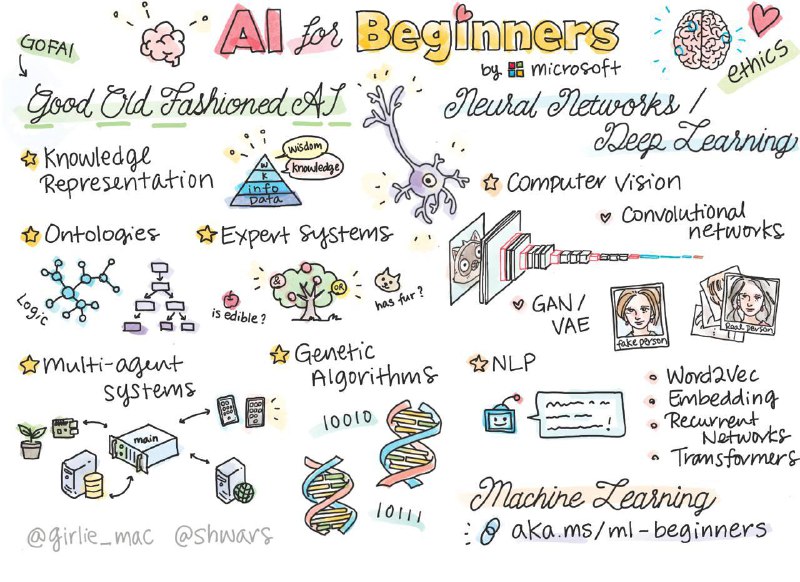 AI for Beginners
by microsoft
ethics
GOFAI
Good Old Fashioned AI
Knowledge
Representation
wisdom
knowledge
W
K
info
Data
Ontologies
Logic
Expert Systems
&
OR
is edible?
has fur?
Multi-agent
systems
main
Genetic
Algorithms
10010
10111
@girlie_mac @shwars
Neural Networks /
Deep Learning
Computer Vision
Convolutional
networks
GAN/
VAE
fake person
Real person
NLP
Word2Vec
Embedding
Recurrent
Networks
Transformers
Machine Learning
aka.ms/ml-beginners